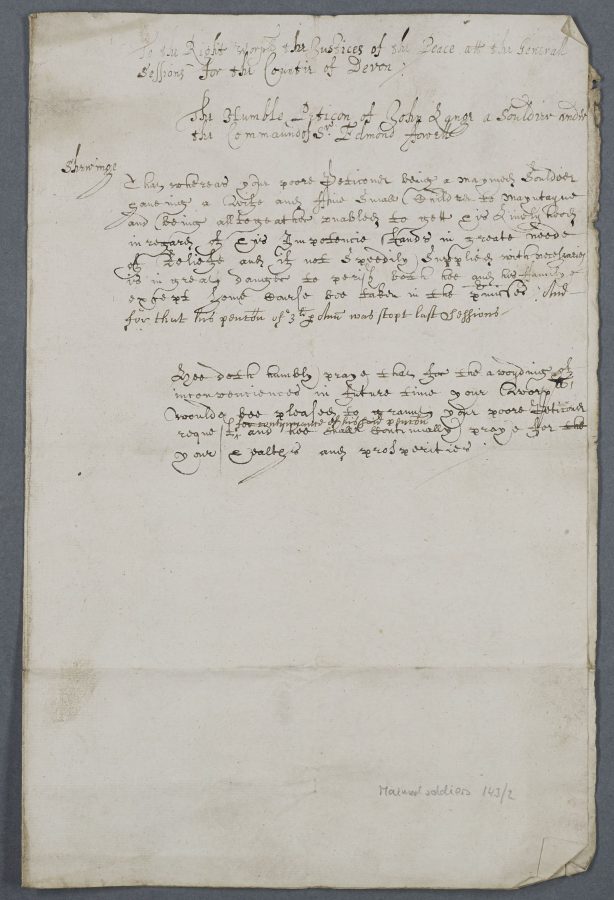 To the Right worpll the Justices of the Peace att the Generall
Sessions for the Countie of Devon
The Humble Peticon of John a Souldier under
the Commaund of Sr Edmond
Shewinge
That whereas your poore Peticoner being a maymed Souldier
haveing a Wife and five Small Children to mayntayne
and being alltogeather unabled to gett his Livelyhood
in regard of his Impotencie stands in greate neede
of Releife and if not Speedily Supplied with necessaries
is in great danger to perish both hee and his family
except some Course bee taken in the premises And
for that his pencon of 3li p Ann was stopt last Sessions
Hee doth humbly praye that for the avoyding of
inconveniences in future time your Worpps
would bee pleased to graunt your poore Peticoner
for continuance of his said pencon
request and hee shall continually praye for the
your healthes and prosperities
Maimed soldiers 143/2